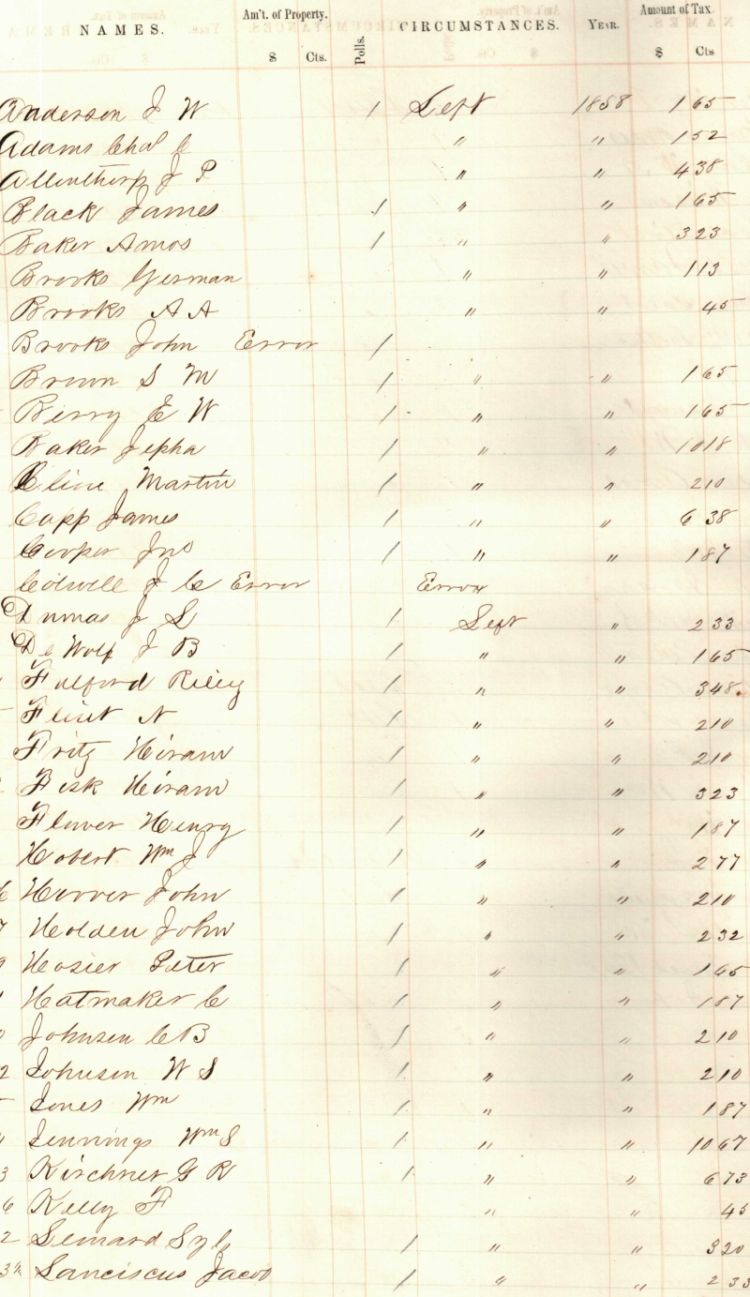 NAMES. Am't. of Property. $ Cts. Polls. CIRCUMSTANCES. YEAR. Amount of Tax $ Cts
Anderson J W 1 Left 1858 1 65
Adams Chas C " " 1 52
Allenthorp J P " " 4 38
Black James 1 " " 1 65
Baker Amos 1 " " 3 23
Brooks German " " 1 13
Brooks A A " " 45
Brooks John Error 1
Brown S M 1 " " 1 65
Berry E W 1 " " 1 65
Baker Jepha 1 " " 10 18
Cline Martin 1 " " 2 10
Capp James 1 " " 6 38
Cooper Jno 1 " " 1 87
Colwell J C Error Error
Dumas J S 1 Left " 2 33
De Wolf J B 1 " " 1 65
Fulford Riley 1 " " 3 48
Flint N 1 " " 2 10
Fritz Hiram 1 " " 2 10
Fisk Hiram 1 " " 3 23
Flower Henry 1 " " 1 87
Hobert Wm J 1 " " 2 77
Hoover John 1 " " 2 10
Holden John 1 " " 2 32
Hosier Peter 1 " " 1 65
Hatmaker C 1 " " 1 87
Johnson C B 1 " " 2 10
Johnson W S 1 " " 2 10
Jones Wm 1 " " 1 87
Jennings Wm S 1 " " 10 67
Kirchner G R 1 " " 6 73
Kelly F " " 45
Lemard Syl 1 " " 3 20
Lanciscus Jacob 1 " " 2 33